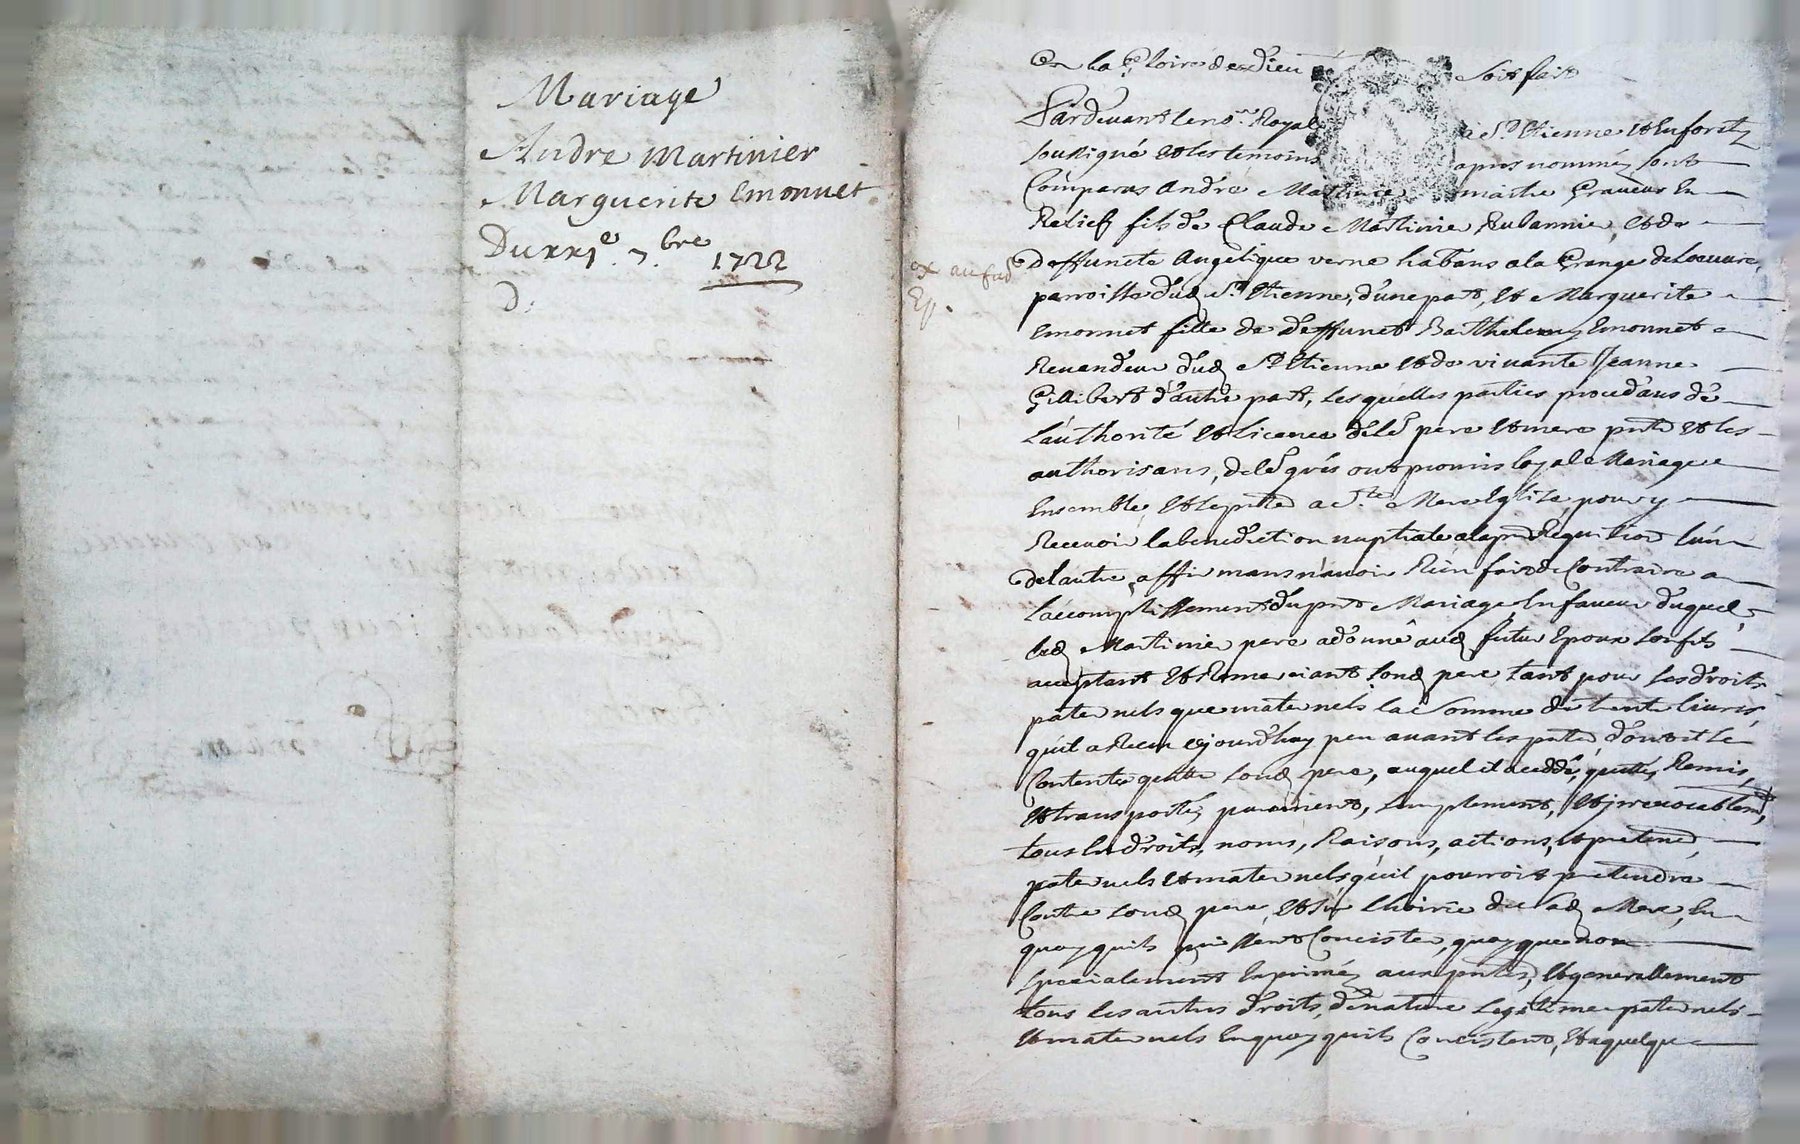 Mariage
Andre Martinier
Marguerite Emonnet
Du xxj.e 7.bre 1722
D.
En la Gloire de Dieu soit fait
Pardevant le no.re Royal a St Etienne et en foretz
soussigné et les temoins apres nommés sont
Comparus André Martinie maitre Graveur En
Relief fils de Claude Martinie Rubannie, et de
deffuncte Angelique verne habans a la Grange de Loeuure,
parroisse dud St Etienne, d'une part, et Marguerite
Emonnet fille de deffunct Barthelemy Emonnet
Revandeur dud St Etienne et de vivante Jeanne
Gillibert d'autre part, Lesquelles parties procedans de
L'authorité et Licence de Ld pere et mere pnts et les
authorisans, de Ld grés ont promis loyal Mariage
Ensemble, et se pnter a Ste Mere Eglise, pour y
Recevoir la benediction nuptiale a la pre Requition L'un
de l'autre, affirmans n'avoir Rien fait de Contraire a
L'accomplissement du pnt Mariage En faveur duquel,
Led Martinie pere a donné aud futur Epoux son fils
acceptant et Remerciant sond pere tant pour ses droits
paternels que maternels la somme de trente livres,
qu'il a Receu cejourd'huy peu avant les pntes, dont il se
Contente quitte sond pere, auquel il a ceddé, quitté, Remis,
et transporté, purement, simplement, et jrrevocablemt,
tous les droits, noms, Raisons, actions, et pretend
paternels et maternels qu'il pourroit pretendre
Contre sond pere, et sur L'hoirie de sad Mere, En
quoy quils puissent Concister, quoyque non
specialement Exprimés aux pntes, et generallement
tous les autres droits, de nature Legitime paternels
et maternels En quoy quils Concistent, et a quelque